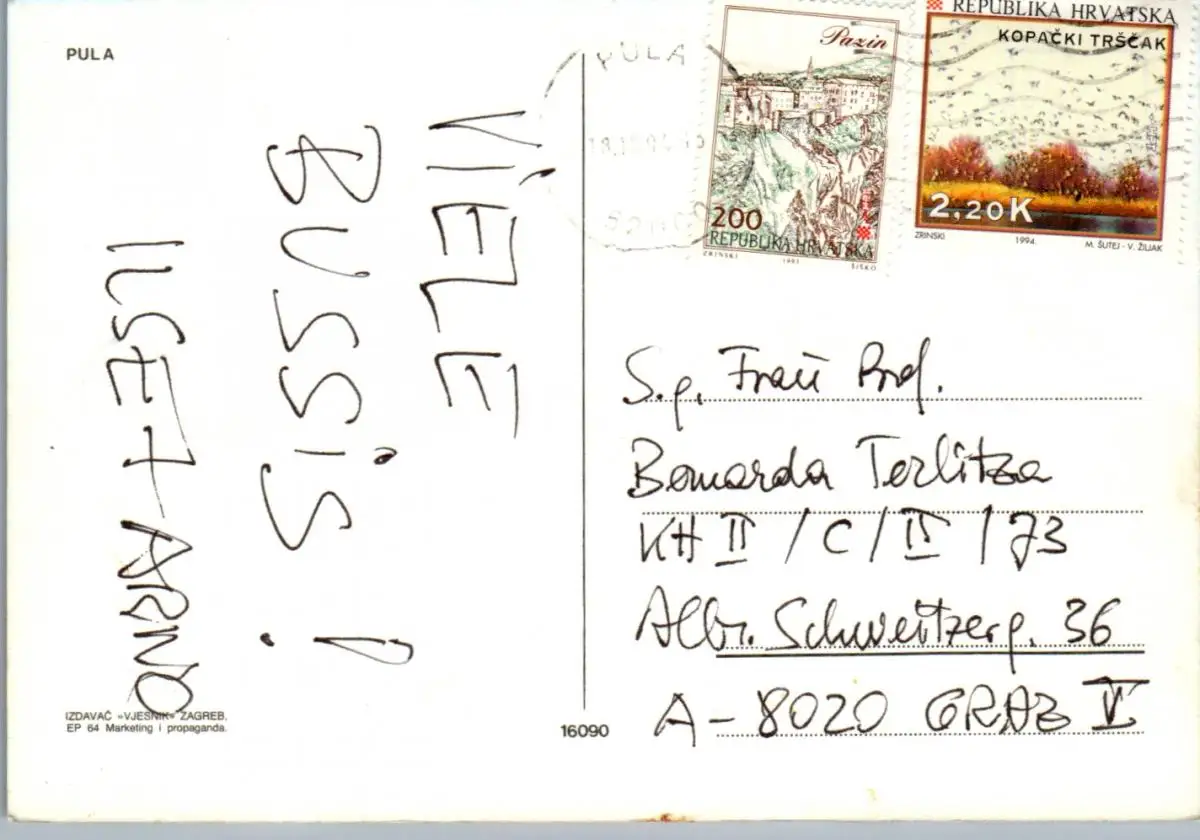 PULA
VIELE
BUSSIS!
ILSE + ARNO
IZDAVAČ »VJESNIK« ZAGREB.
EP 64 Marketing i propaganda.
16090
PULA
Pazin
200
REPUBLIKA HRVATSKA
ZRINSKI 1993 ŠIŠKO
REPUBLIKA HRVATSKA
KOPAČKI TRŠČAK
2,20K
ZRINSKI 1994. M. ŠUTEJ - V. ŽILJAK
S.g. Frau Prof.
Bernarda Terlitza
KH II / C / IV / 73
Albr. Schweitzerg. 36
A - 8020 GRAZ V